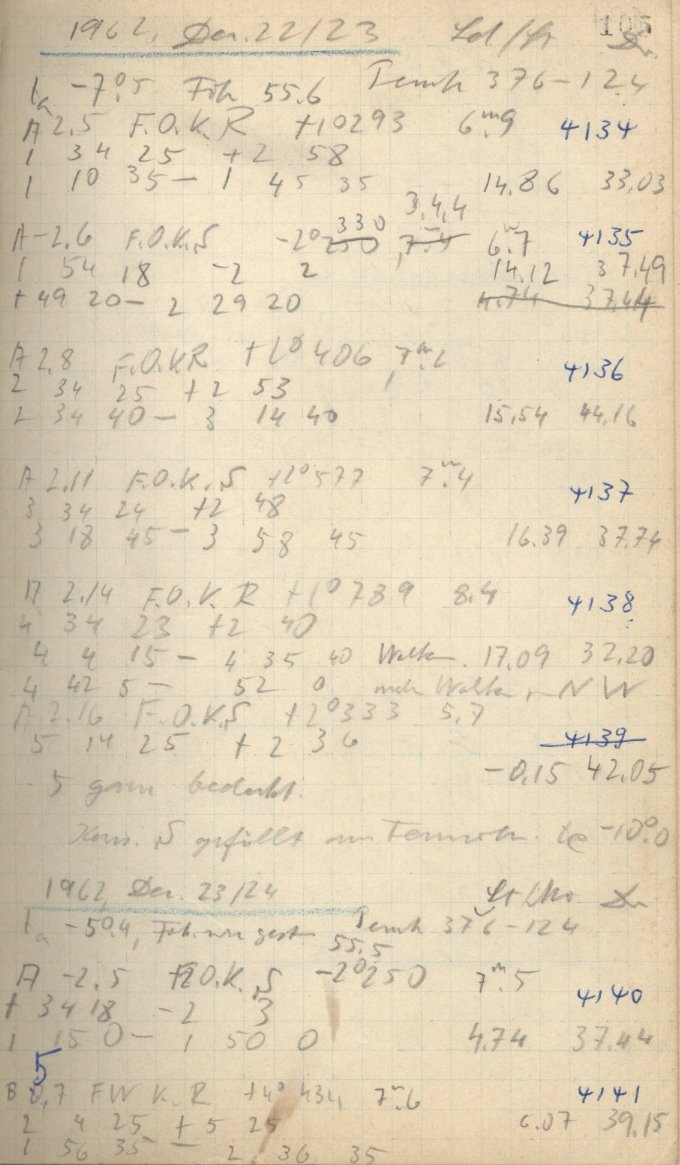 105
1962, Dez. 22/23
tₐ -7°.5 Fok 55.6 Temh 376-124
A 2.5 F.O.K.R +1°293 6ᵐ.9 4134
1 34 25 +2 58
1 10 35 - 1 45 35 14.86 33.03
3,4,4
A -2.6 F.O.K.S -2°250 330 7ᵐ.4 6ᵐ.7 4135
1 54 18 -2 2 14.12 37.49
1 49 20 - 2 29 20 4.74 37.44
A 2.8 F.O.K.R +1°406 7ᵐ.2 4136
2 34 25 +2 53
2 34 40 - 3 14 40 15.54 44.16
A 2.11 F.O.K.S +1°577 7ᵐ.4 4137
3 34 24 +2 48
3 18 45 - 3 58 45 16.39 37.74
A 2.14 F.O.K.R +1°789 8.4 4138
4 34 23 +2 40
4 4 15 - 4 35 40 Wolken. 17.09 32.20
4 42 5 - 52 0 mehr Wolken, NW
A 2.16 F.O.K.S +2°333 5.7
5 14 25 +2 36 4139
-0.15 42.05
5 ganz bedeckt.
Kass. S gefüllt -10°.0
1962, Dez. 23/24
tₐ -5°.4, Fok. wie gest. 55.5 Temh 376-124
A -2.5 F.O.K.S -2°250 7ᵐ.5 4140
1 34 18 -2 3
1 15 0 - 1 50 0 4.74 37.44
5
B 0.7 FW K.R +4°434 7ᵐ.6 4141
2 4 25 +5 25 6.07 39.15
1 56 35 - 2 36 35